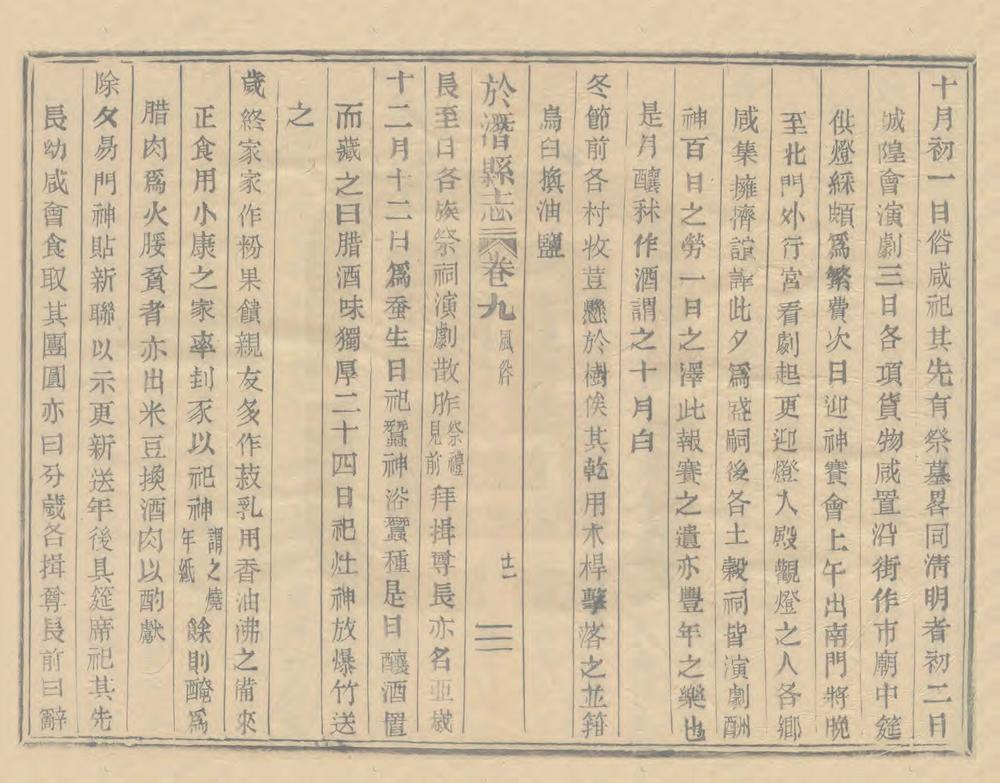 十月初一日俗咸祀其先有祭墓畧同清明者初二日
城隍會演劇三日各項貨物咸置沿街作市廟中筵
供燈綵頗爲繁費次日迎神賽會上午出南門將晚
至北門外行宮看劇起更迎燈入殿觀燈之人各鄉
咸集擁擠諠譁此夕爲盛嗣後各土榖祠皆演劇酬
神百日之勞一日之澤此報賽之遺亦豐年之樂也
是月釀秫作酒謂之十月白
冬節前各村收荳懸於樹俟其乾用木桿擊落之並籍
烏臼換油鹽
於潛縣志 卷九 風俗 十一
長至日各族祭祠演劇散胙祭禮見前拜揖尊長亦名亞歲
十二月十二日爲蚕生日祀蠶神浴蠶種是日釀酒置
而藏之曰腊酒味獨厚二十四日祀灶神放爆竹送
之
歲終家家作粉果饋親友多作菽乳用香油沸之備來
正食用小康之家率刲豕以祀神謂之燒年紙餘則醃爲
腊肉爲火腿貧者亦出米豆換酒肉以酌獻
除夕易門神貼新聯以示更新送年後具筵席祀其先
長幼咸會食取其團圓亦曰分歲各揖尊長前曰辭